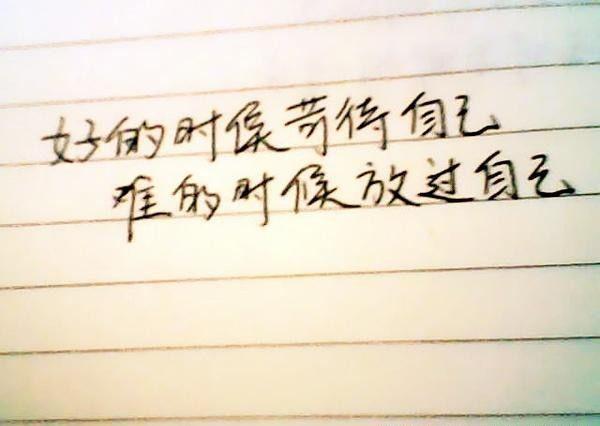 好的时候苛待自己
难的时候放过自己